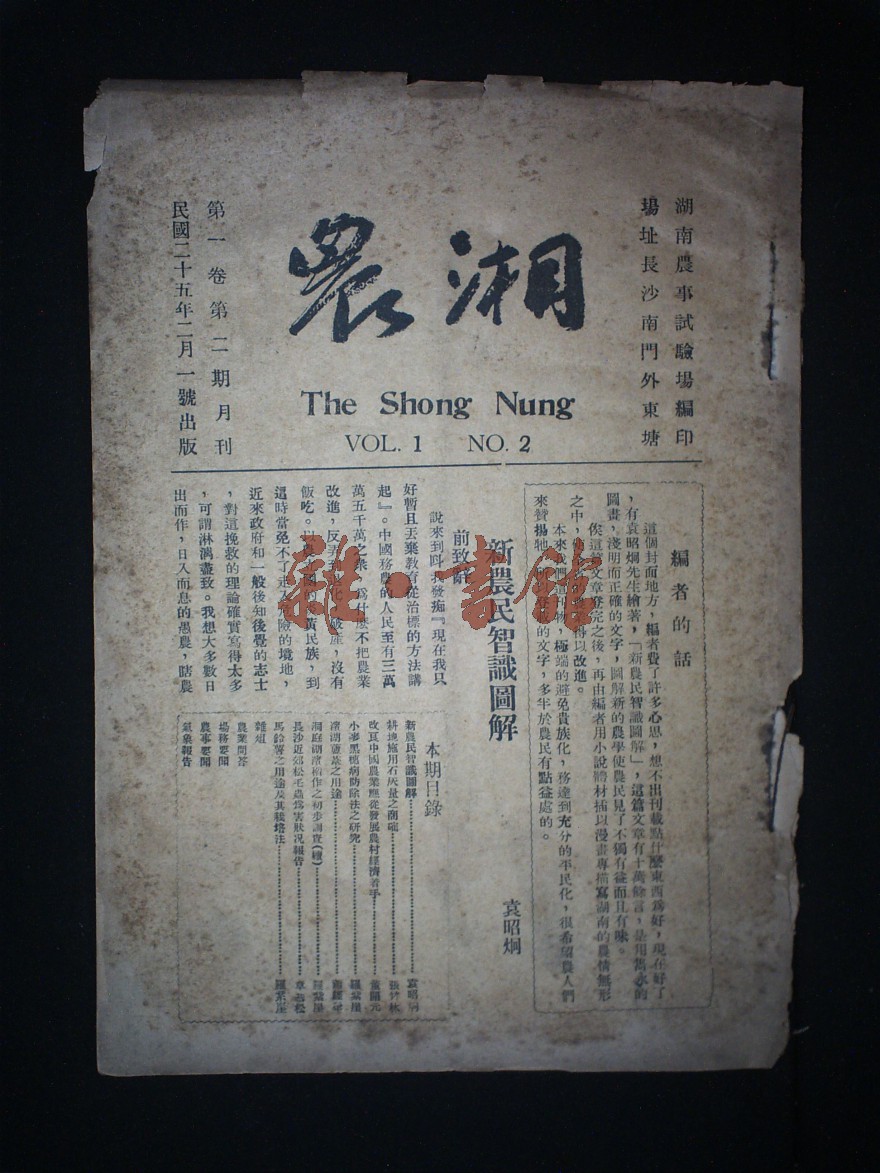 湖南農事試驗場編印
場址長沙南門外東塘
湘農
The Shong Nung
VOL. 1 NO. 2
第一卷第二期月刊
民國二十五年二月一號出版
編者的話
這個封面地方，編者費了許多心思，想不出刊載點什麼東西爲好，現在好了
，有袁昭炯先生繪著，「新農民智識圖解」，這篇文章有十萬餘言，是用雋永的
圖畫，淺明而正確的文字，圖解新的農學使農民見了不獨有益而且有味。
俟這篇文章登完之後，再由編者用小說體材插以漫畫專描寫湖南的農情無形
之中，得以改進。
本來，極端的避免貴族化，務達到充分的平民化，很希望農人們
來贊揚牠，的文字，多半於農民有點益處的。
新農民智識圖解
袁昭炯
前致辭
說來到叫我發痴『現在我只
好暫且丟棄教育從治標的方法講
起』。中國務農的人民至有三萬
萬五千萬之衆，爲什麽不把農業
改進，反弄破產，沒有
飯吃。黃民族，到
這時當免不了走入危險的境地，
近來政府和一般後知後覺的志士
，對這挽救的理論確實寫得太多
，可謂淋漓盡致。我想大多數日
出而作，日入而息的愚農，瞎農
本期目錄
新農民智識圖解 袁昭炯
耕地施用石灰量之商確
改良中國農業應從發展農村經濟着手
小麥黑穗病防除法之研究 羅業崖
濱湖蘆葦之用途
洞庭湖濱稻作之初步調查(續)
長沙近郊松毛蟲爲害狀况報告
馬鈴薯之用途及其栽培法 羅業崖
雜俎
農業問答
場務要聞
農事要聞
氣象報告
雜·書館